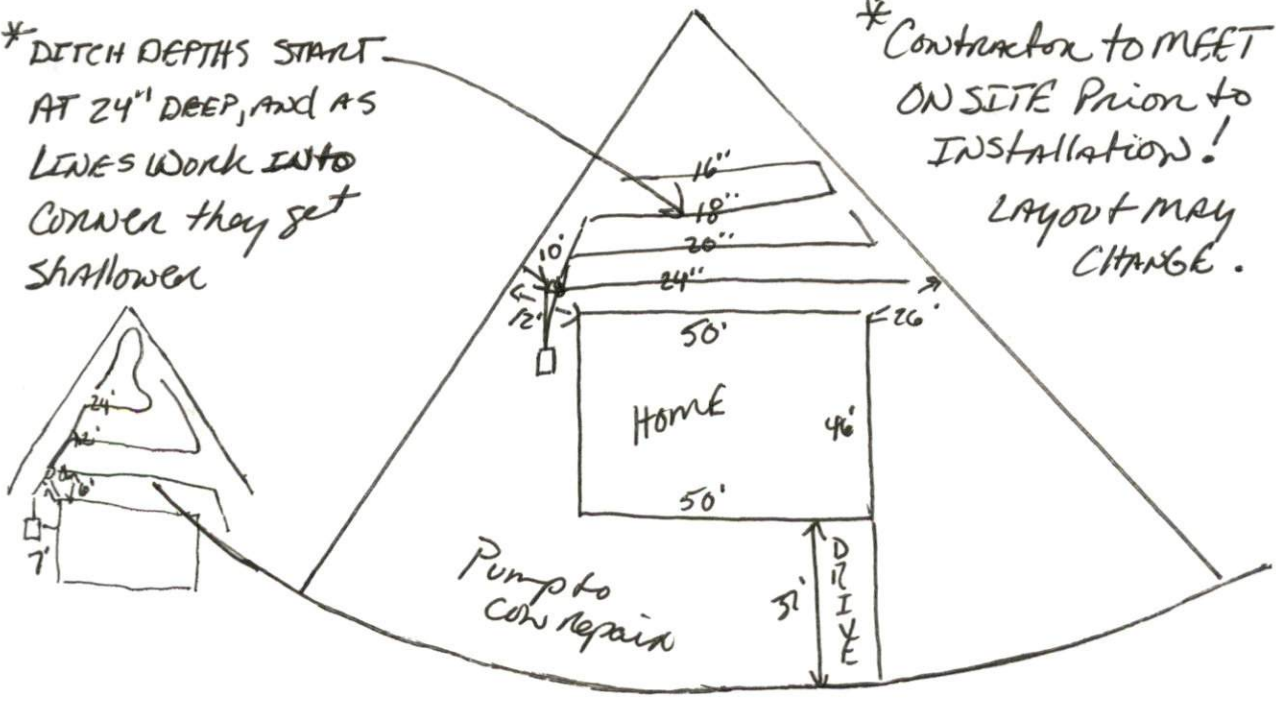 * DITCH DEPTHS START
AT 24" DEEP, AND AS
LINES WORK INTO
CORNER they get
Shallower
* Contractor to MEET
ON SITE Prior to
INStallation!
LAYOUT MAY
CHANGE.
16"
18"
20"
24"
10'
12'
26'
50'
HOME
46'
50'
DRIVE
Pump to
repair
24'
7'